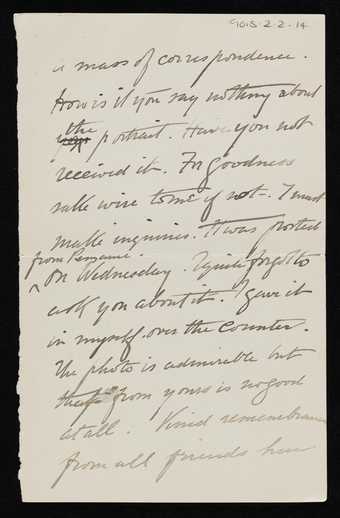 9015.2.2.14
a mass of correspondence.
How is it you say nothing about
the
portrait. Have you not
received it. For goodness
sake wire to me if not. I must
make inquiries. It was posted
from Penzance
on Wednesday. I quite forgot to
ask you about it. I gave it
in myself over the counter.
The photo is admirable but
from yours is no good
at all. Kind remembrances
from all friends here